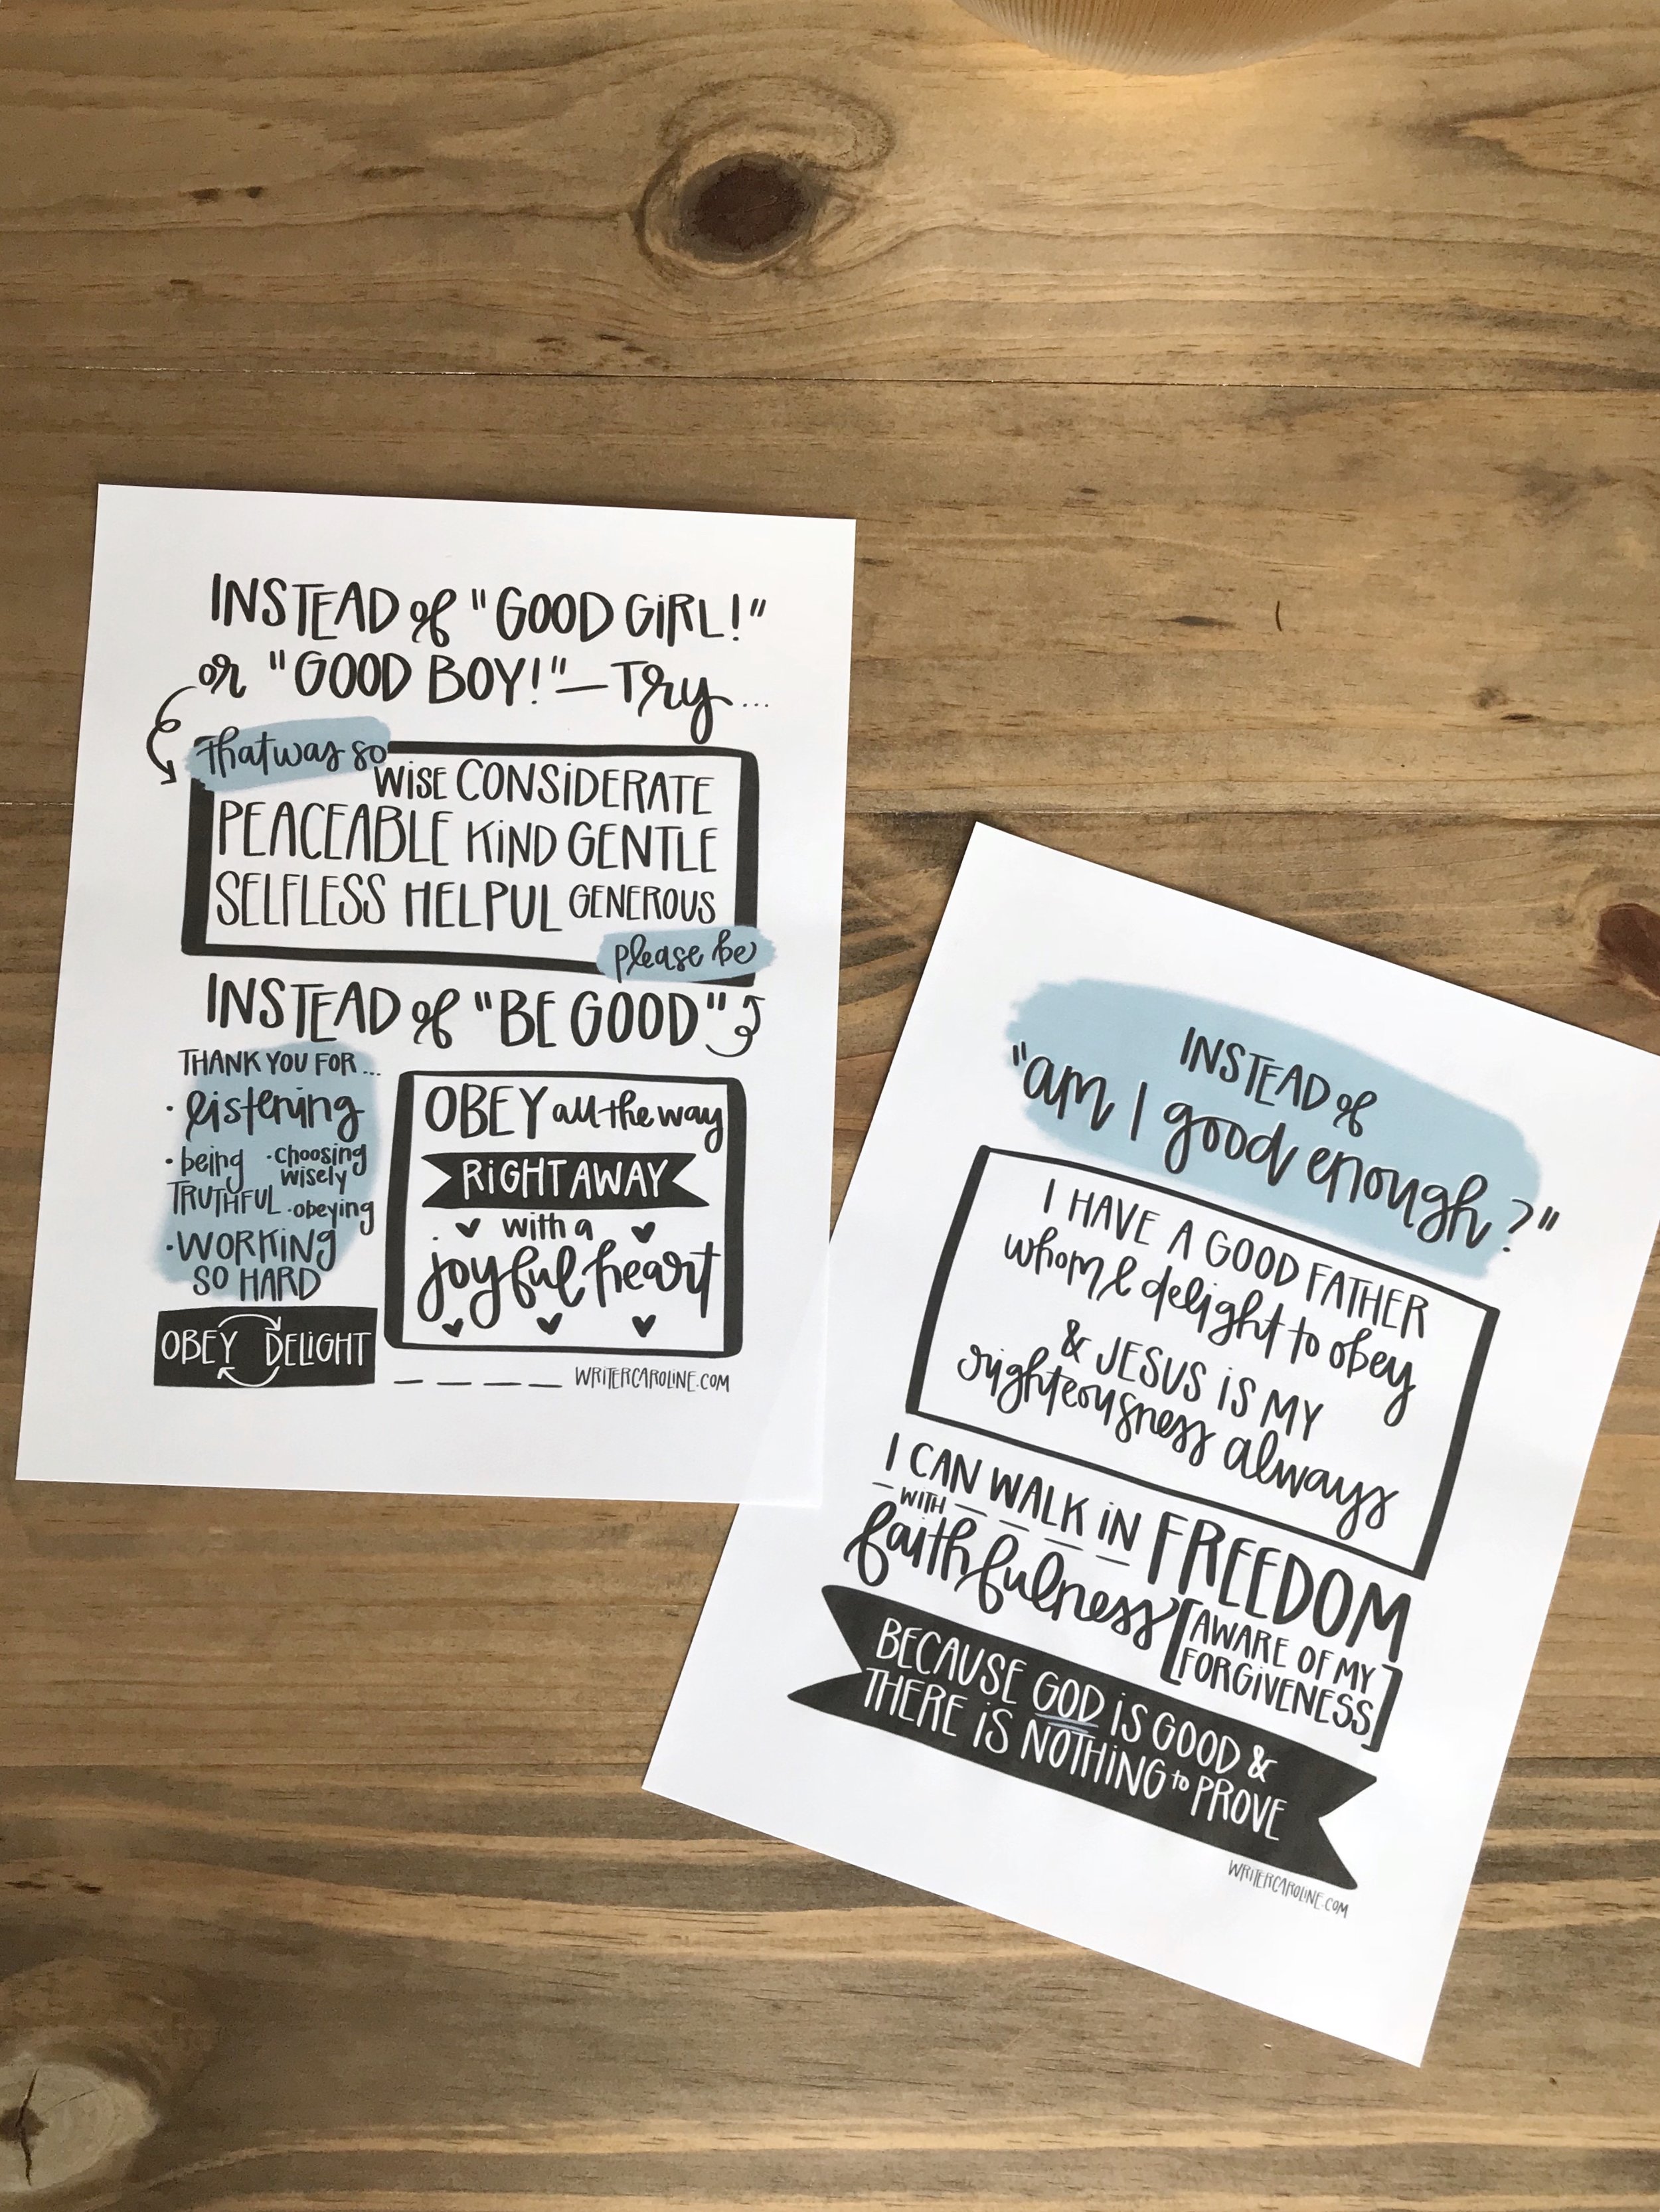 INSTEAD of "GOOD GIRL!"
or "GOOD BOY!"—Try...
That was so
WISE CONSIDERATE
PEACEABLE KIND GENTLE
SELFLESS HELPUL GENEROUS
please be
INSTEAD of "BE GOOD"
THANK YOU FOR...
· listening
· being · choosing
wisely
TRUTHFUL · obeying
· WORKING
SO HARD
OBEY DELIGHT
OBEY all the way
RIGHT AWAY
with a
joyful heart
WRITERCAROLINE.COM
INSTEAD of
"am I good enough?"
I HAVE A GOOD FATHER
whom I delight to obey
& JESUS IS MY
righteousness always
I CAN WALK IN FREEDOM
WITH
faithfulness [AWARE OF MY
FORGIVENESS]
BECAUSE GOD IS GOOD &
THERE IS NOTHING to PROVE
WRITERCAROLINE.COM